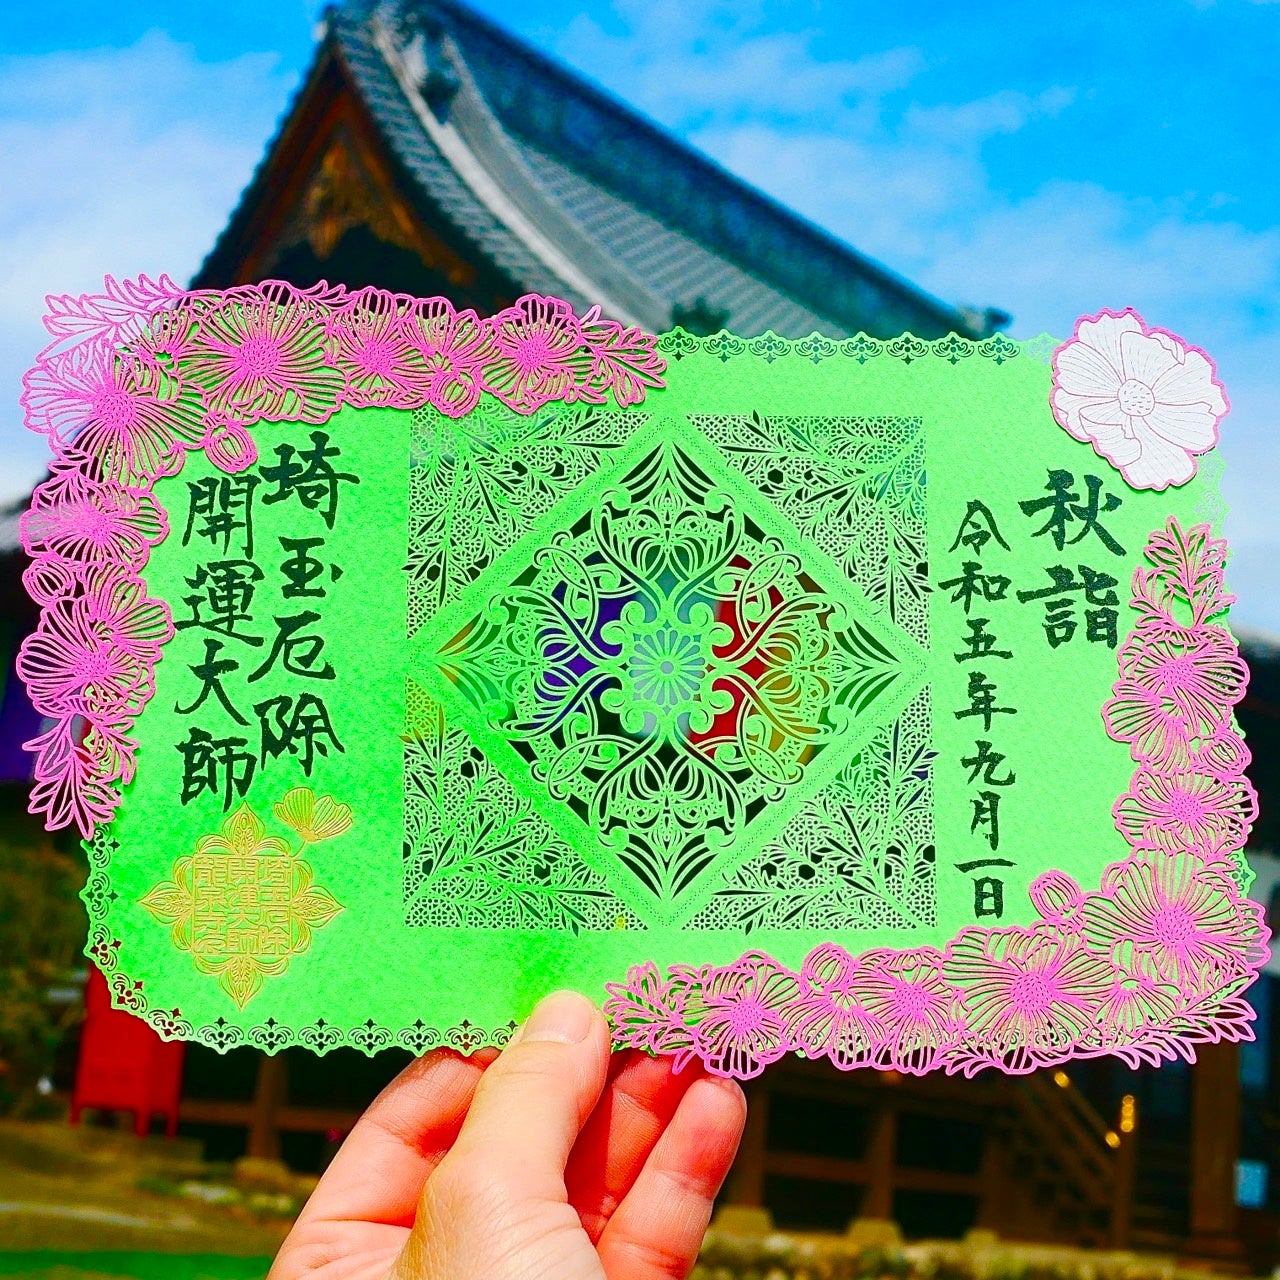 秋詣
令和五年九月一日
埼玉厄除
開運大師
埼玉厄除
開運大師
龍泉寺